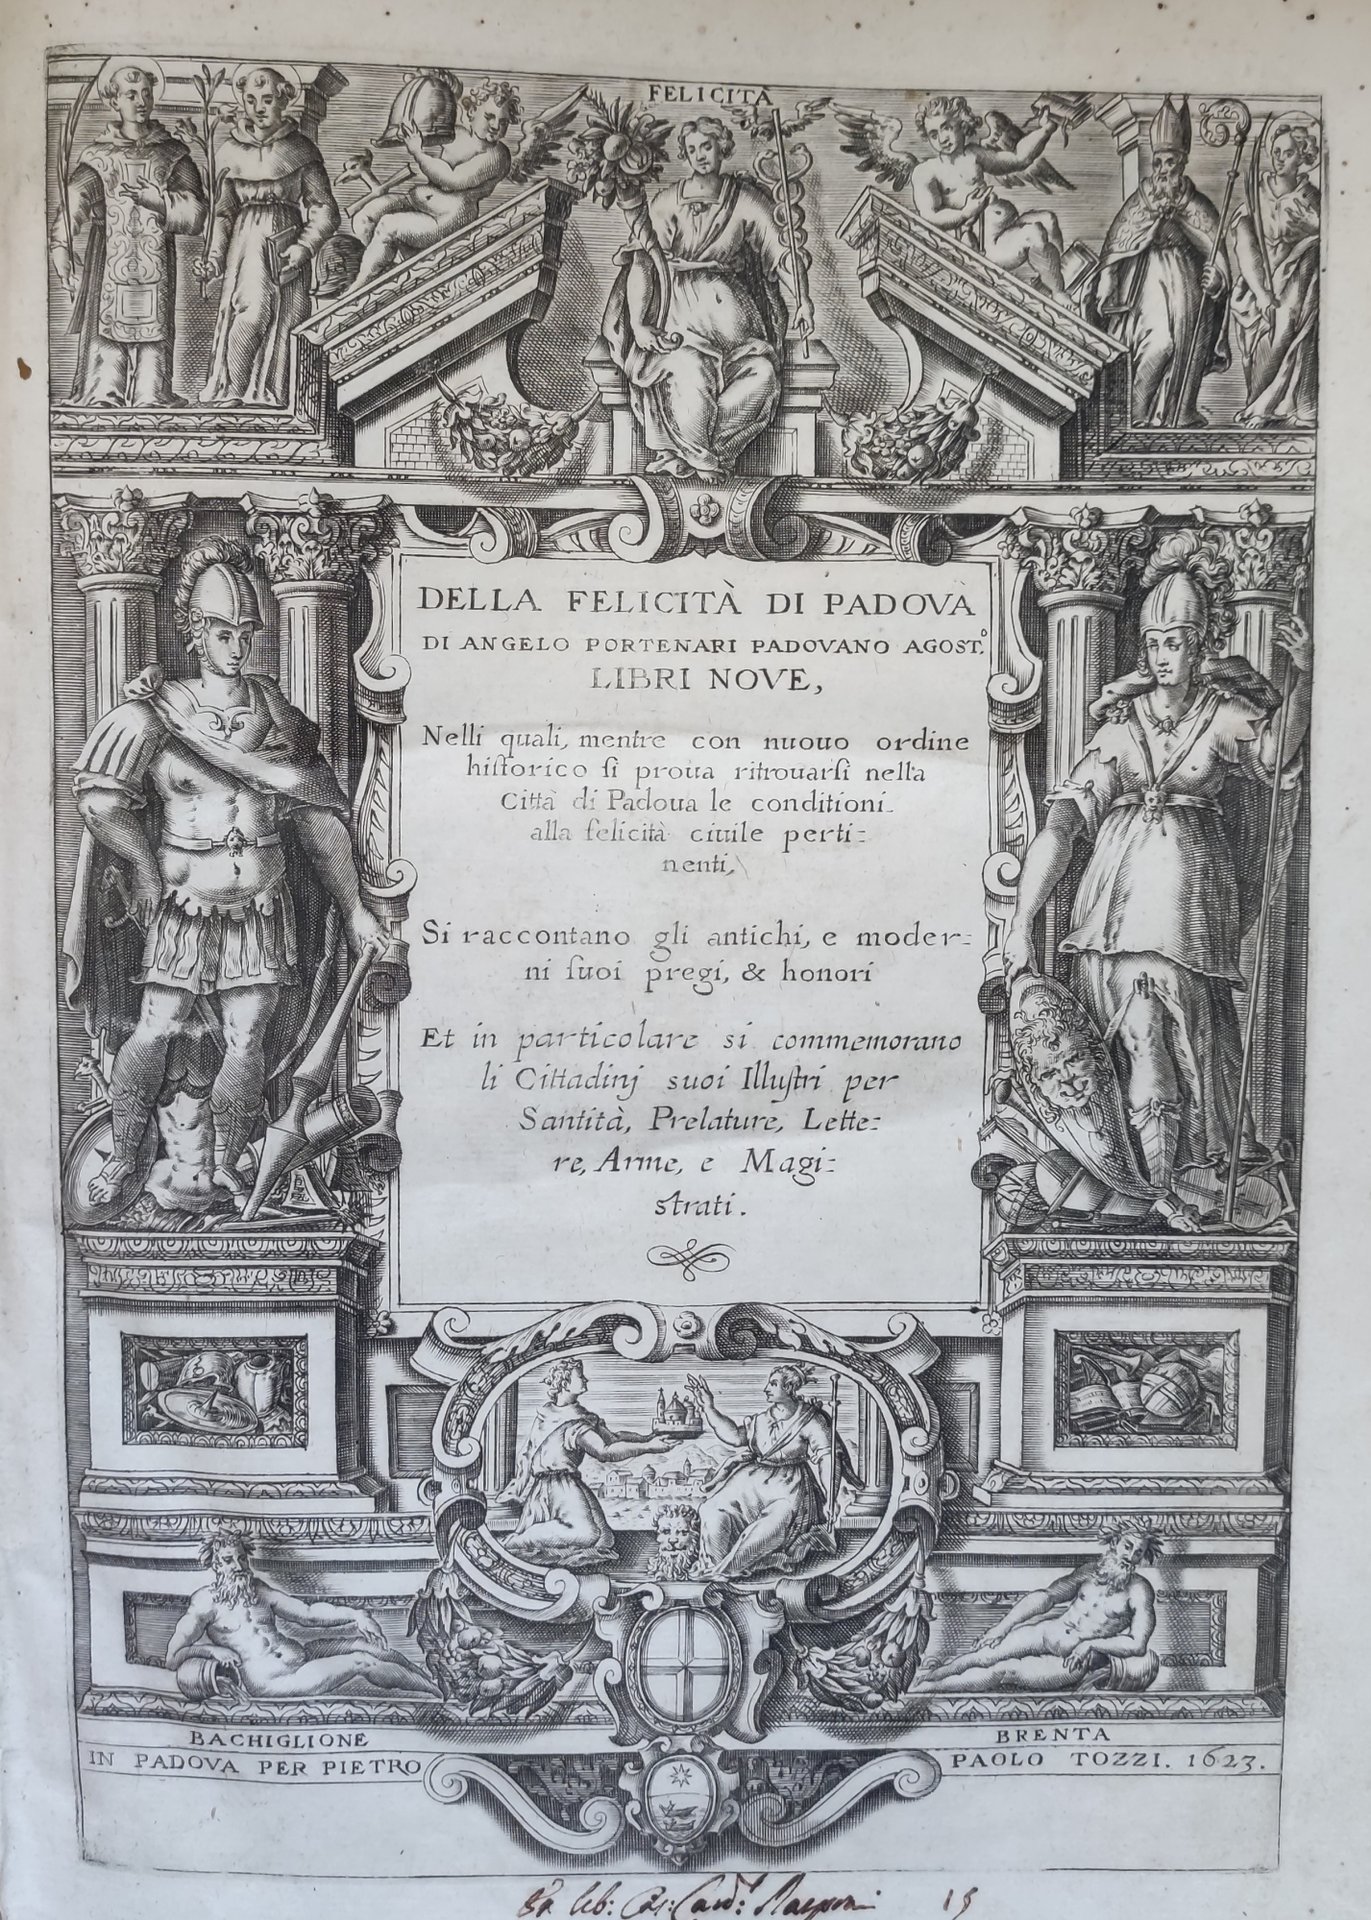 FELICITÀ
DELLA FELICITÀ DI PADOVA
DI ANGELO PORTENARI PADOVANO AGOST.º
LIBRI NOVE,
Nelli quali, mentre con nuouo ordine
hiſtorico ſi proua ritrouarſi nella
Città di Padoua le conditioni
alla felicità ciuile perti=
nenti,
Si raccontano gli antichi, e moder=
ni ſuoi pregi, & honori
Et in particolare si commemorano
li Cittadinj suoi Illuſtri per
Santità, Prelature, Lette=
re, Arme, e Magi=
strati.
BACHIGLIONE
BRENTA
IN PADOVA PER PIETRO PAOLO TOZZI. 1623.